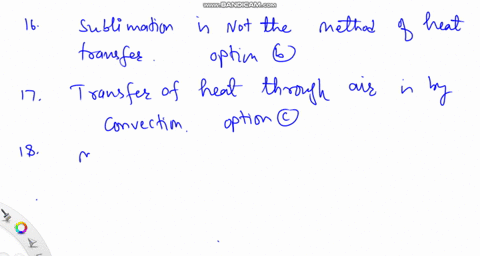 WWW.BANDICAM.COM
16. Sublimation is Not the method of heat
transfer. option (b)
17. Transfer of heat through air is by
convection. option (c)
18.